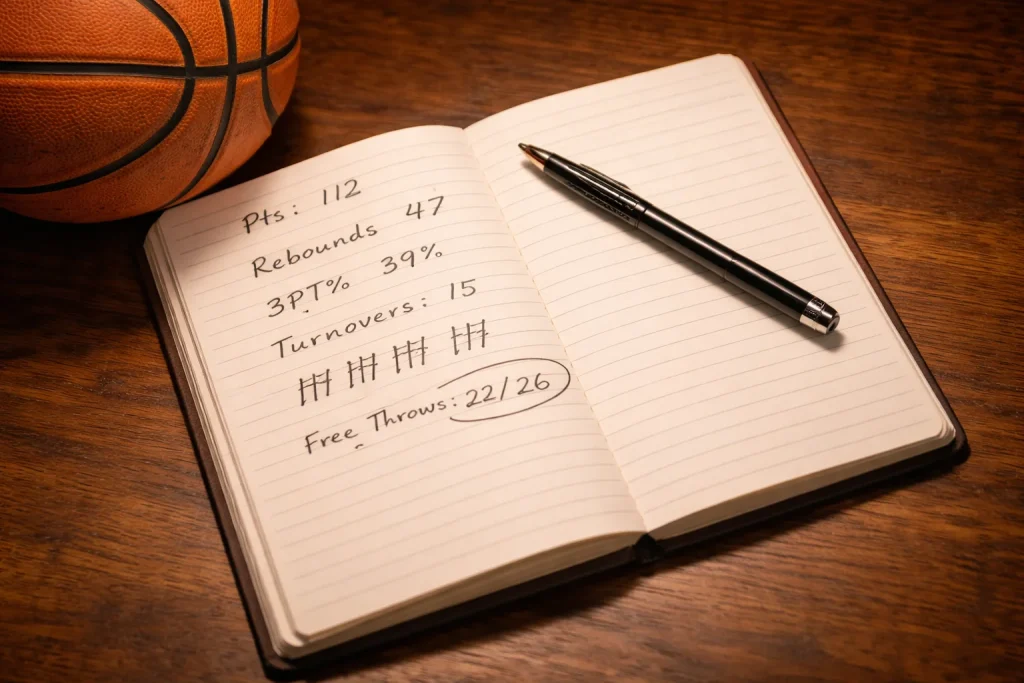 Pts: 112
Rebounds 47
3PT% 39%
Turnovers: 15
Free Throws: 22/26